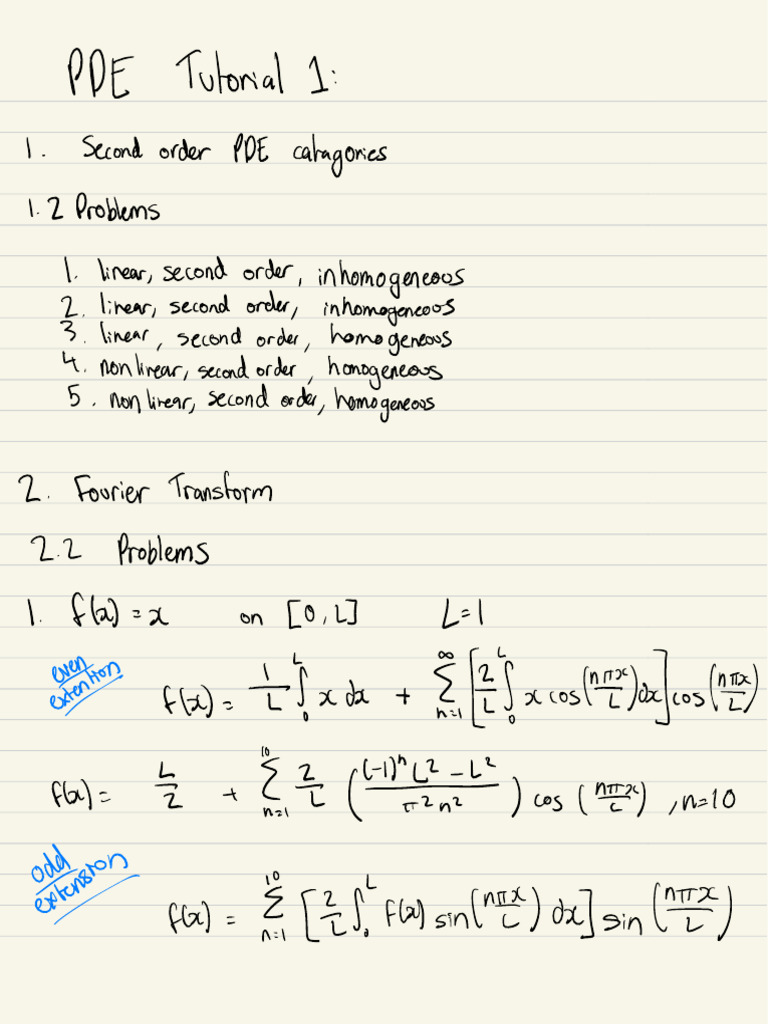 PDE Tutorial 1:
1. Second order PDE catagories
1.2 Problems
1. linear, second order, inhomogeneous
2. linear, second order, inhomogeneous
3. linear, second order, homogeneous
4. nonlinear, second order, homogeneous
5. nonlinear, second order, homogeneous
2. Fourier Transform
2.2 Problems
1. f(x) = x on [0, L] L=1
even extention
f(x) = 1/L ∫₀ᴸ x dx + ∑_{n=1}^{∞} [2/L ∫₀ᴸ x cos(nπx/L) dx] cos(nπx/L)
f(x) = L/2 + ∑_{n=1}^{10} 2/L ((-1)ⁿ L² - L² / π² n²) cos(nπx/L), n=10
odd extension
f(x) = ∑_{n=1}^{10} [2/L ∫₀ᴸ f(x) sin(nπx/L) dx] sin(nπx/L)